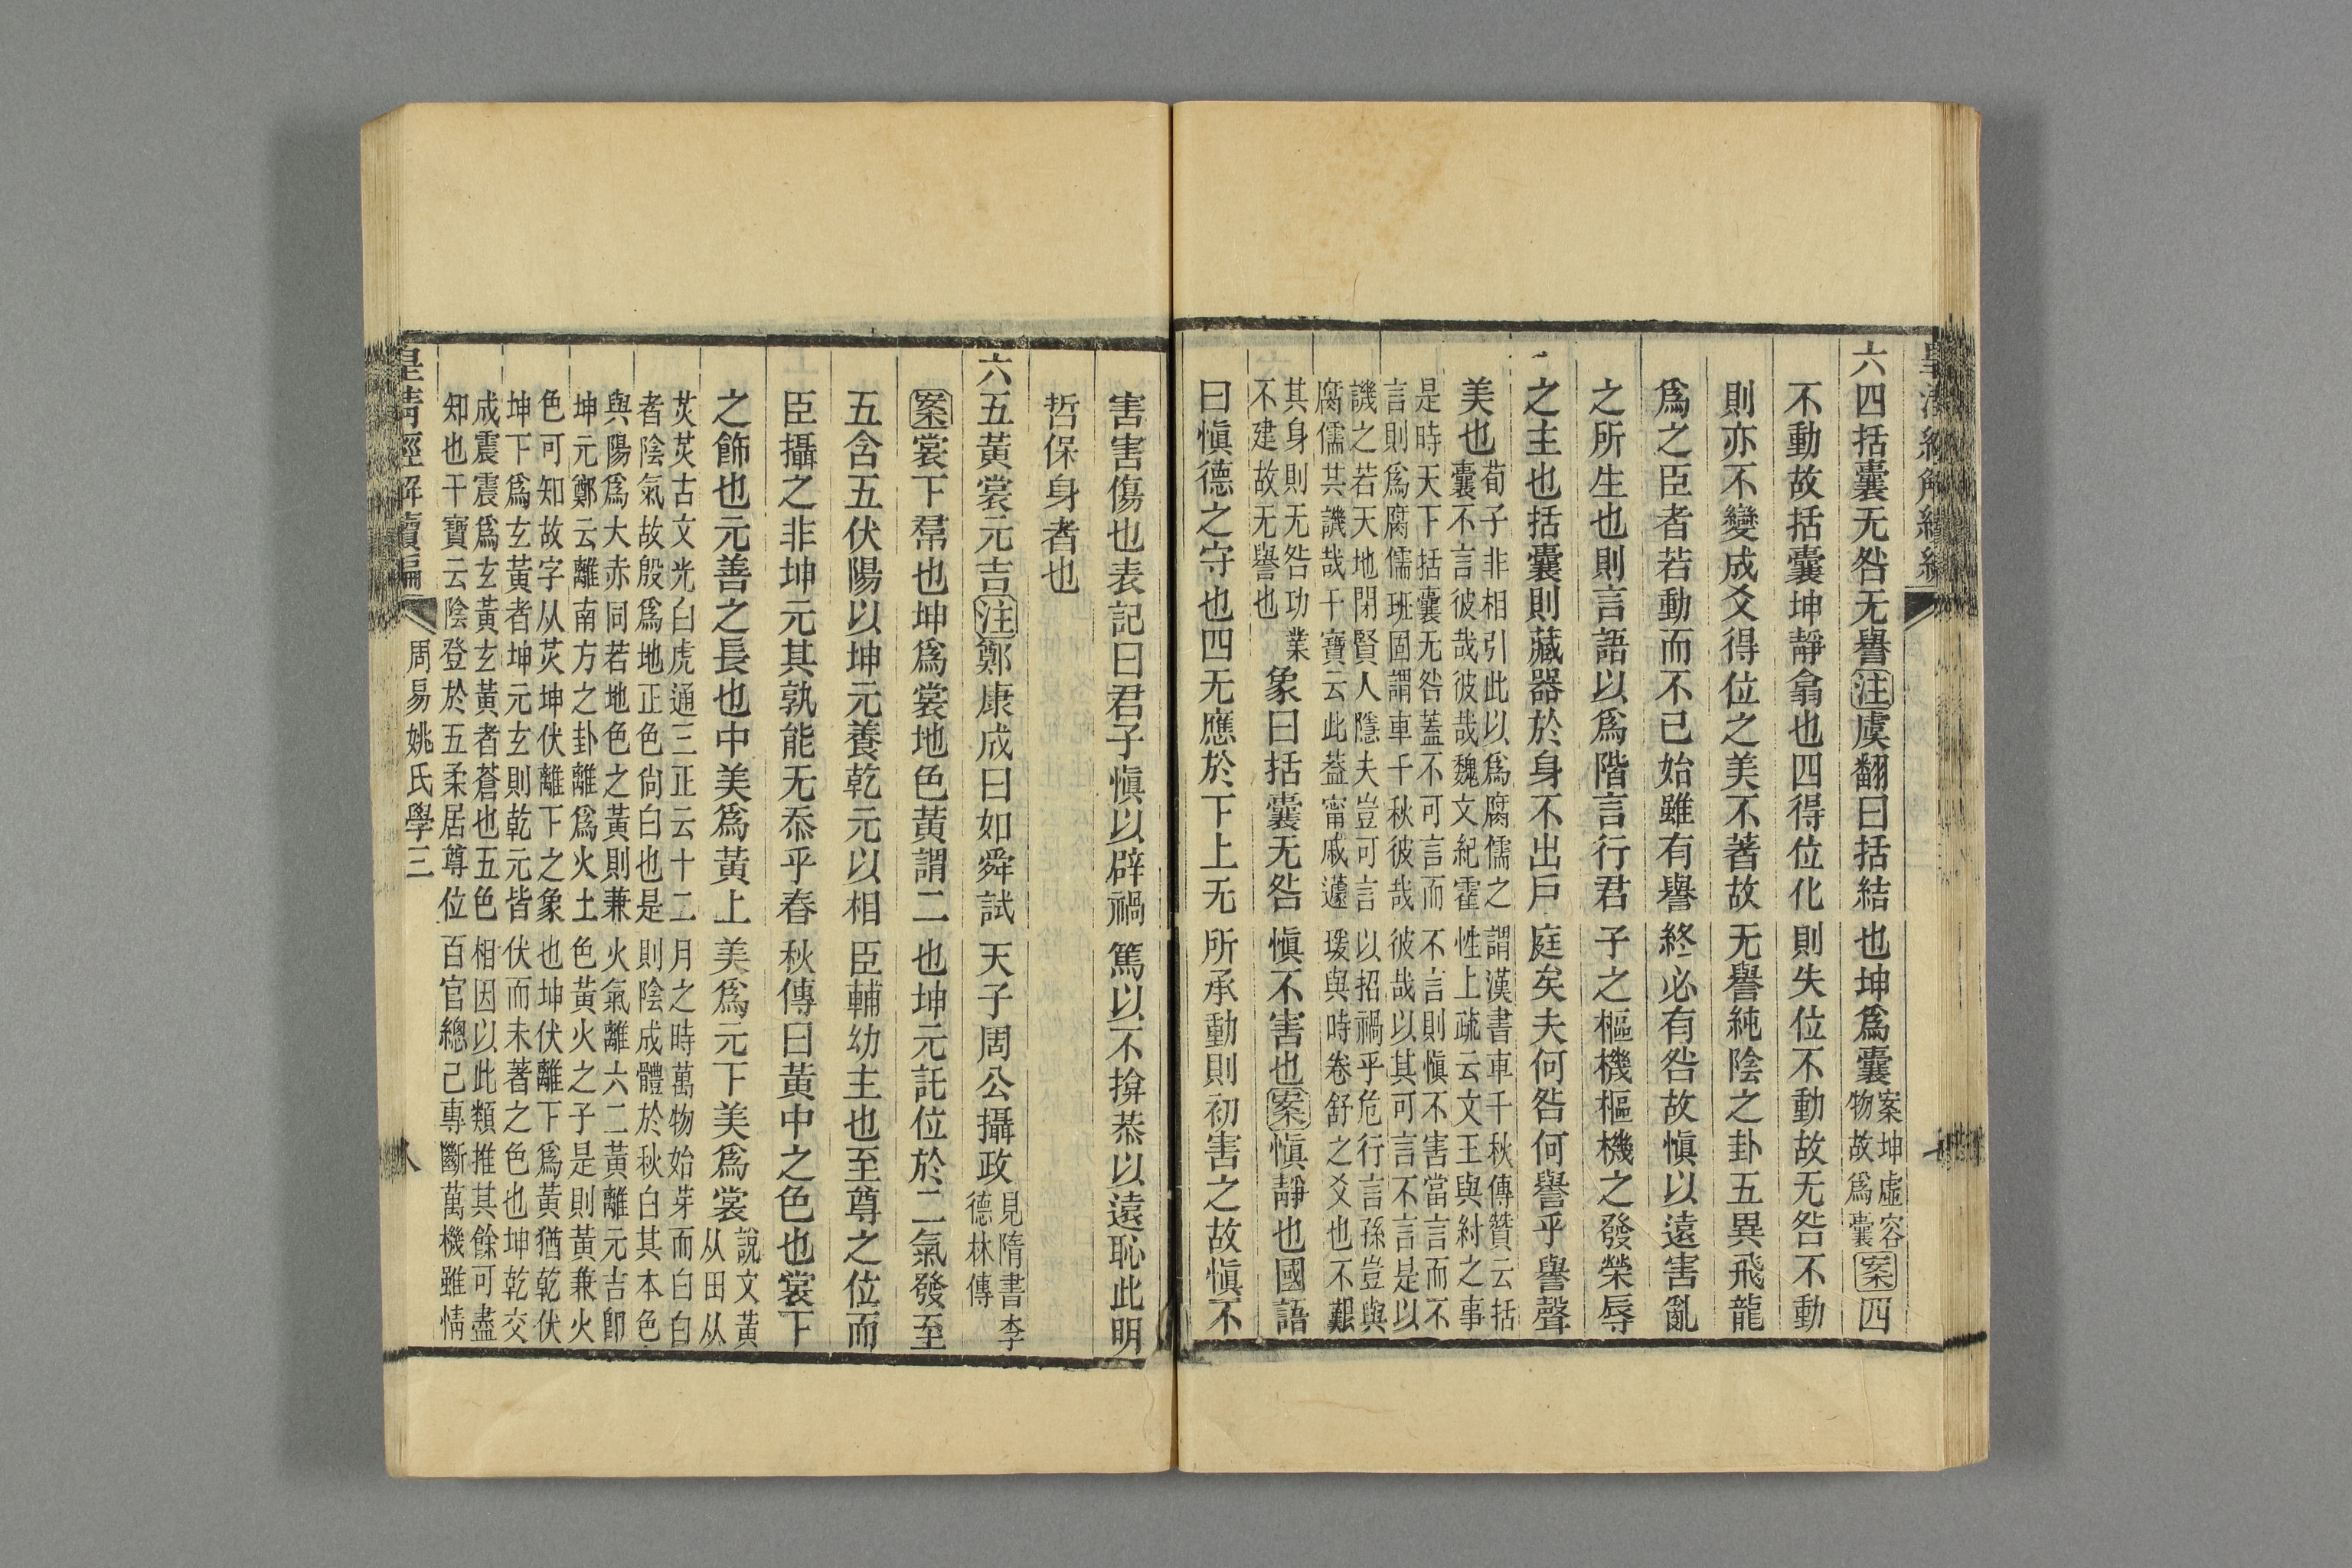 六四括囊无咎无譽注虞翻曰括結也坤爲囊案坤虛容物故爲囊案四
不動故括囊坤靜翕也四得位化則失位不動故无咎不動
則亦不變成爻得位之美不著故无譽純陰之卦五異飛龍
爲之臣者若動而不已始雖有譽終必有咎故慎以遠害亂
之所生也則言語以爲階言行君子之樞機樞機之發榮辱
之主也括囊則藏器於身不出戶庭矣夫何咎何譽乎譽聲
美也荀子非相引此以爲腐儒之謂漢書車千秋傳贊云括
囊不言彼哉彼哉魏文紀霍性上疏云文王與紂之事
是時天下括囊无咎蓋不可言而不言則慎不害當言而不
言則爲腐儒班固謂車千秋彼哉彼哉以其可言不言是以
譏之若天地閉賢人隱夫豈可言以招禍乎危行言孫豈與
腐儒共譏哉干寶云此葢甯戚蘧瑗與時卷舒之爻也不艱
其身則无咎功業
不建故无譽也象曰括囊无咎慎不害也案慎靜也國語
曰慎德之守也四无應於下上无所承動則初害之故慎不
害害傷也表記曰君子慎以辟禍篤以不揜恭以遠恥此明
哲保身者也
六五黃裳元吉注鄭康成曰如舜試天子周公攝政見隋書李德林傳
案裳下帬也坤爲裳地色黃謂二也坤元託位於二氣發至
五含五伏陽以坤元養乾元以相臣輔幼主也至尊之位而
臣攝之非坤元其孰能无忝乎春秋傳曰黃中之色也裳下
之飾也元善之長也中美爲黃上美爲元下美爲裳說文黃从田从
炗炗古文光白虎通三正云十二月之時萬物始芽而白白
者陰氣故殷爲地正色尙白也是則陰成體於秋白其本色
與陽爲大赤同若地色之黃則兼火氣離六二黃離元吉卽
坤元鄭云離南方之卦離爲火土色黃火之子是則黃兼火
色可知故字从炗坤伏離下之象也坤伏離下爲黃猶乾伏
坤下爲玄黃者坤元玄則乾元皆伏而未著之色也坤乾交
成震震爲玄黃玄黃者蒼也五色相因以此類推其餘可盡
知也干寶云陰登於五柔居尊位百官總己專斷萬機雖情
皇清經解續編 周易姚氏學三 八